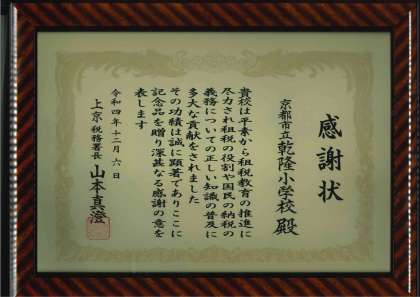 感謝状
京都市立乾隆小学校殿
貴校は平素から租税教育の推進に
尽力され租税の役割や国民の納税の
義務についての正しい知識の普及に
多大な貢献をされました
その功績は誠に顕著でありここに
記念品を贈り深甚なる感謝の意を
表します
令和四年十二月六日
上京税務署長 山本真澄